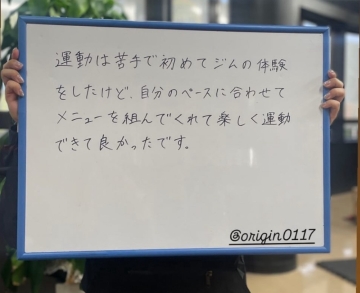 運動は苦手で初めてジムの体験
をしたけど、自分のペースに合わせて
メニューを組んでくれて楽しく運動
できて良かったです。
@origin0117